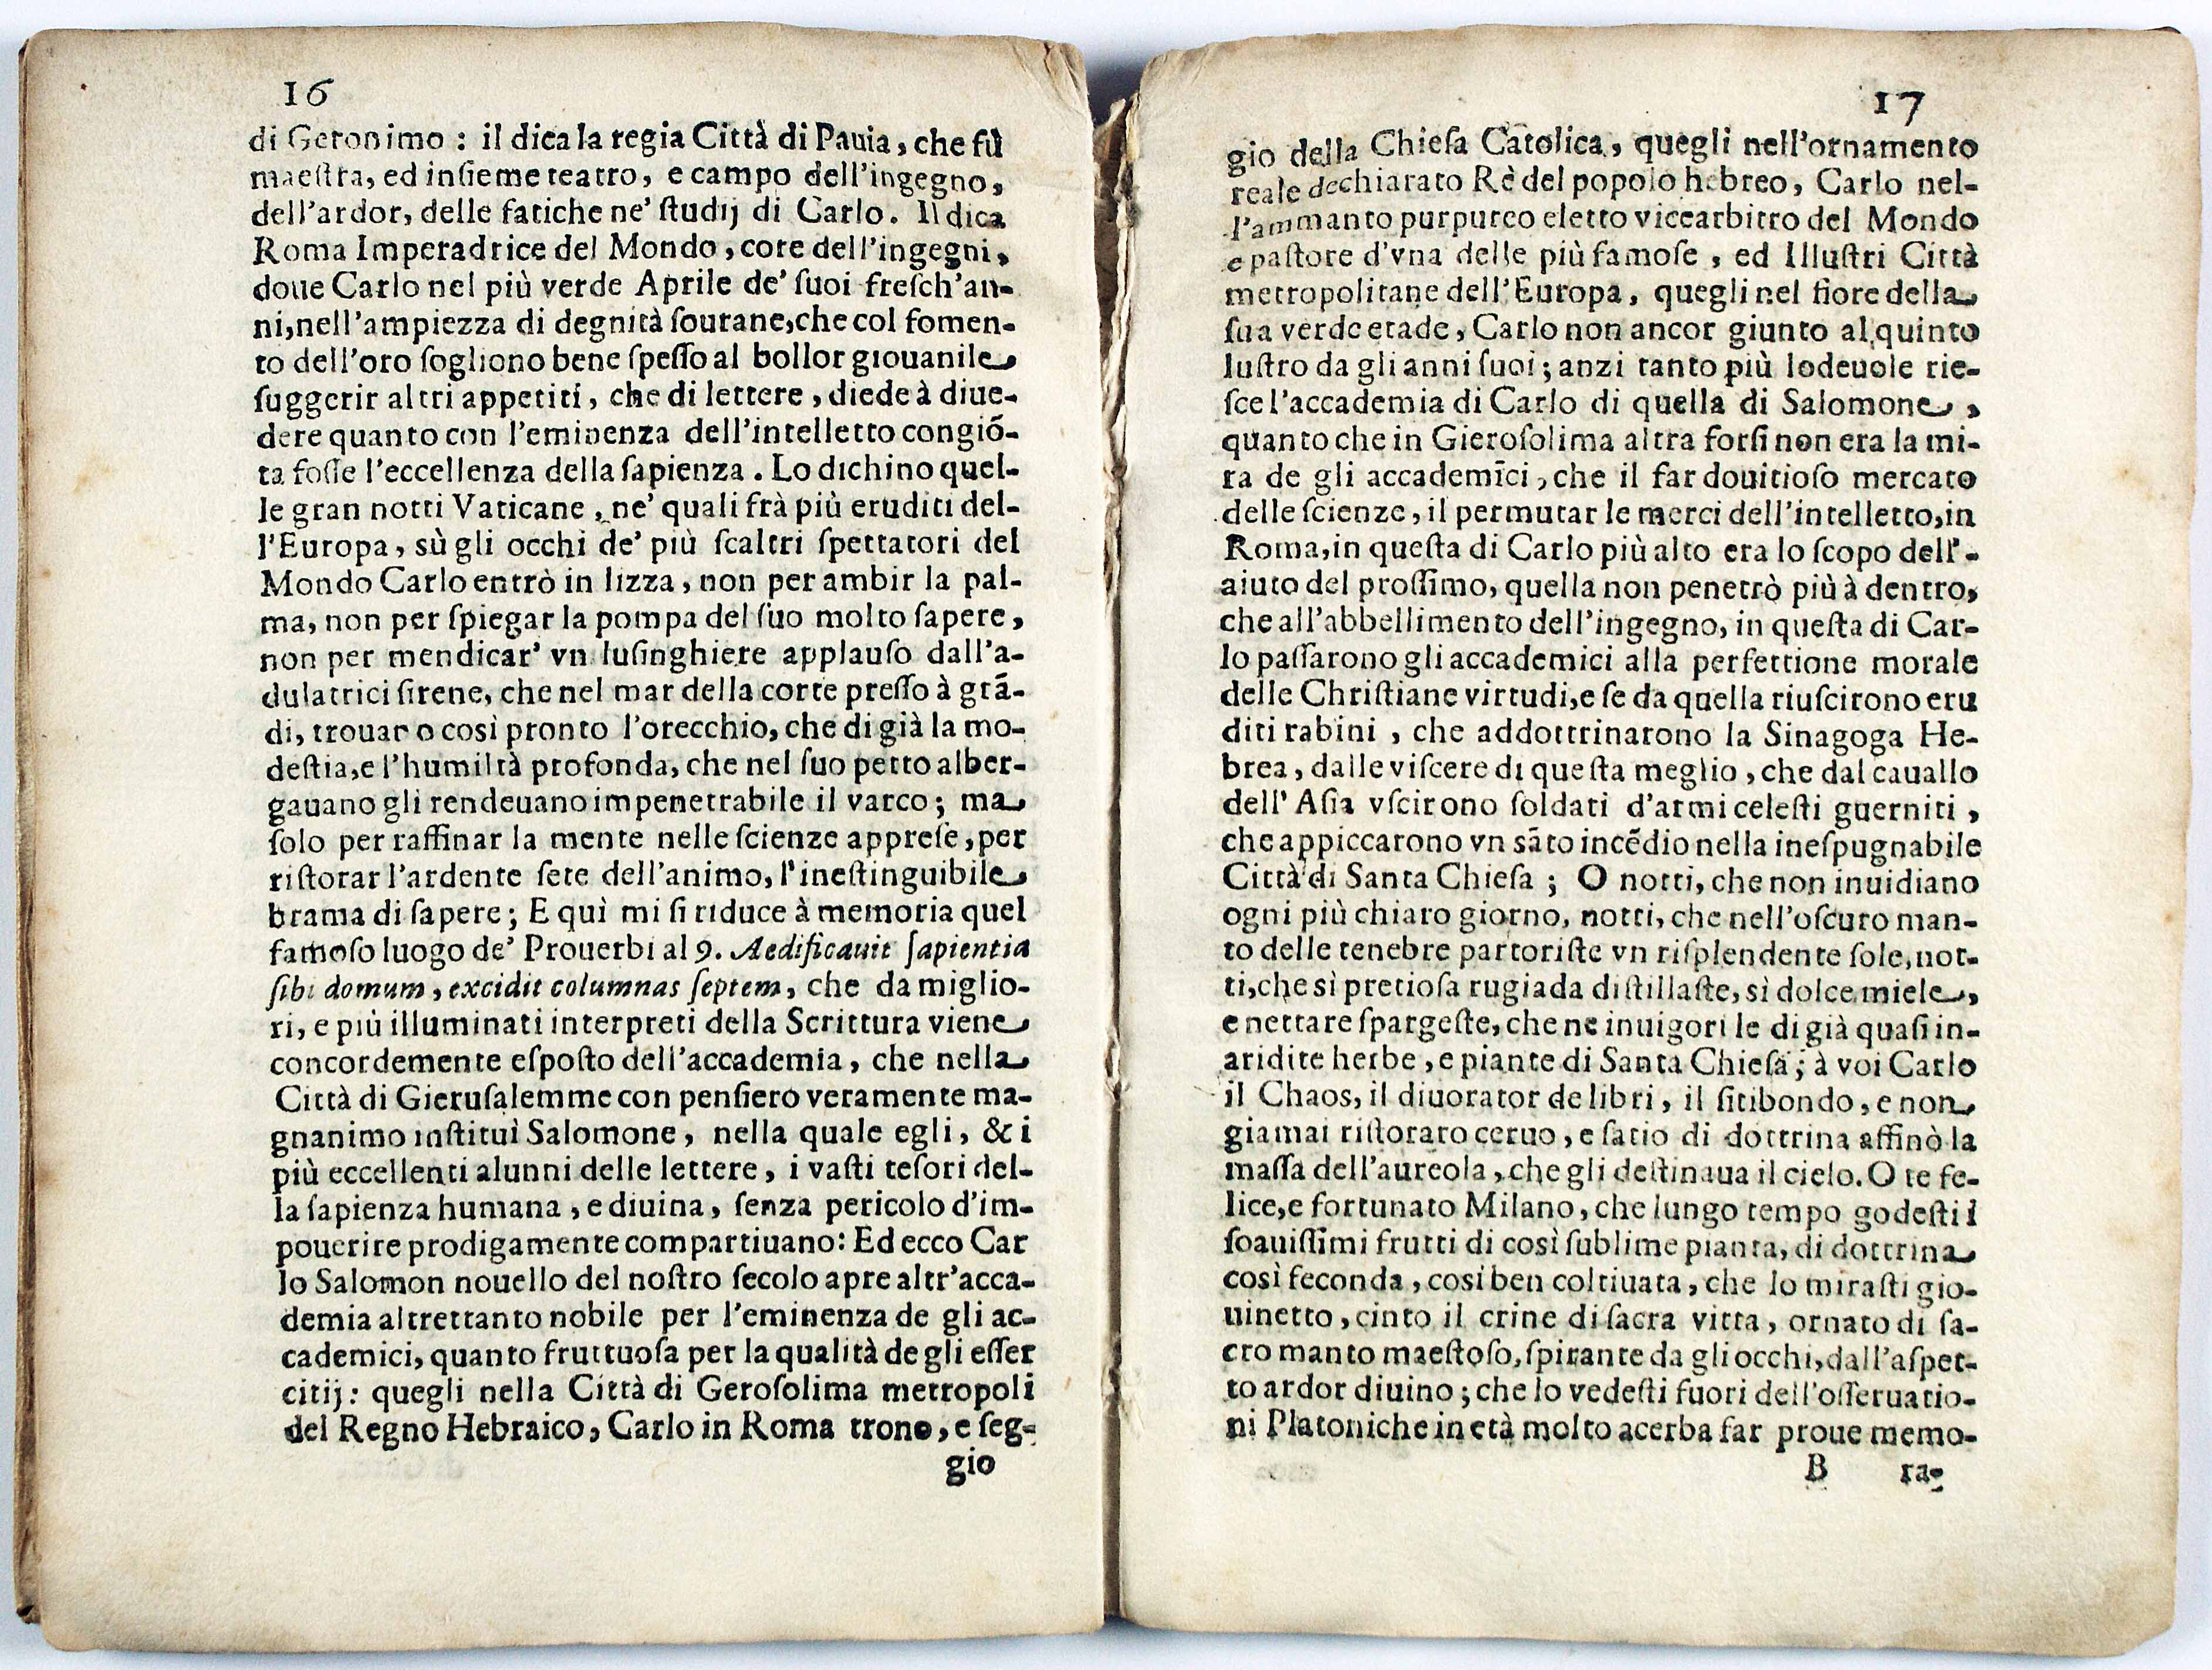 16
di Geronimo : il dica la regia Città di Pauia, che fù
maeſtra, ed inſieme teatro, e campo dell'ingegno,
dell'ardor, delle fatiche ne' ſtudij di Carlo. Il dica
Roma Imperadrice del Mondo, core dell'ingegni,
doue Carlo nel più verde Aprile de' ſuoi freſch'an-
ni,nell'ampiezza di degnità ſourane,che col fomen-
to dell'oro ſogliono bene ſpeſſo al bollor giouanile
ſuggerir altri appetiti, che di lettere, diede à diue-
dere quanto con l'eminenza dell'intelletto congiõ-
ta foſſe l'eccellenza della ſapienza. Lo dichino quel-
le gran notti Vaticane, ne' quali frà più eruditi del-
l'Europa, sù gli occhi de' più ſcaltri ſpettatori del
Mondo Carlo entrò in lizza, non per ambir la pal-
ma, non per ſpiegar la pompa del ſuo molto ſapere,
non per mendicar' vn luſinghiere applauſo dall'a-
dulatrici ſirene, che nel mar della corte preſſo à grã-
di, trouaro così pronto l'orecchio, che di già la mo-
deſtia,e l'humiltà profonda, che nel ſuo petto alber-
gauano gli rendeuano impenetrabile il varco; ma
ſolo per raffinar la mente nelle ſcienze appreſe, per
riſtorar l'ardente ſete dell'animo, l'ineſtinguibile
brama di ſapere; E quì mi ſi riduce à memoria quel
famoſo luogo de' Prouerbi al 9. Aedificauit ſapientia
ſibi domum, excidit columnas ſeptem, che da miglio-
ri, e più illuminati interpreti della Scrittura viene
concordemente eſpoſto dell'accademia, che nella
Città di Gieruſalemme con penſiero veramente ma-
gnanimo inſtituì Salomone, nella quale egli, & i
più eccellenti alunni delle lettere, i vaſti teſori del-
la ſapienza humana, e diuina, ſenza pericolo d'im-
pouerire prodigamente compartiuano: Ed ecco Car
lo Salomon nouello del noſtro ſecolo apre altr'acca-
demia altrettanto nobile per l'eminenza de gli ac-
cademici, quanto fruttuoſa per la qualità de gli eſſer
citij: quegli nella Città di Geroſolima metropoli
del Regno Hebraico, Carlo in Roma trono, e ſeg-
gio
17
gio della Chieſa Catolica, quegli nell'ornamento
reale dechiarato Rè del popolo hebreo, Carlo nel-
l'ammanto purpureo eletto vicearbitro del Mondo
e paſtore d'vna delle più famoſe, ed Illuſtri Città
metropolitane dell'Europa, quegli nel fiore della
ſua verde etade, Carlo non ancor giunto al quinto
luſtro da gli anni ſuoi; anzi tanto più lodeuole rie-
ſce l'accademia di Carlo di quella di Salomone,
quanto che in Gieroſolima altra forſi non era la mi-
ra de gli accademici, che il far douitioſo mercato
delle ſcienze, il permutar le merci dell'intelletto,in
Roma,in queſta di Carlo più alto era lo ſcopo dell'-
aiuto del proſſimo, quella non penetrò più à dentro,
che all'abbellimento dell'ingegno, in queſta di Car-
lo paſſarono gli accademici alla perfettione morale
delle Chriſtiane virtudi,e ſe da quella riuſcirono eru
diti rabini, che addottrinarono la Sinagoga He-
brea, dalle viſcere di queſta meglio, che dal cauallo
dell' Aſia vſcirono ſoldati d'armi celeſti guerniti,
che appiccarono vn sãto incẽdio nella ineſpugnabile
Città di Santa Chieſa; O notti, che non inuidiano
ogni più chiaro giorno, notti, che nell'oſcuro man-
to delle tenebre partoriſte vn riſplendente ſole, not-
ti,che sì pretioſa rugiada diſtillaſte, sì dolce miele,
e nettare ſpargeſte, che ne inuigorì le di già quaſi in-
aridite herbe, e piante di Santa Chieſa; à voi Carlo
il Chaos, il diuorator de libri, il ſitibondo, e non
giamai riſtorato ceruo, e ſatio di dottrina affinò la
maſſa dell'aureola, che gli deſtinaua il cielo. O te fe-
lice,e fortunato Milano, che lungo tempo godeſti i
ſoauiſſimi frutti di così ſublime pianta, di dottrina
così feconda, così ben coltiuata, che lo miraſti gio-
uinetto, cinto il crine di ſacra vitta, ornato di ſa-
cro manto maeſtoſo, ſpirante da gli occhi, dall'aſpet-
to ardor diuino; che lo vedeſti fuori dell'oſſeruatio-
ni Platoniche in età molto acerba far proue memo-
B ra-